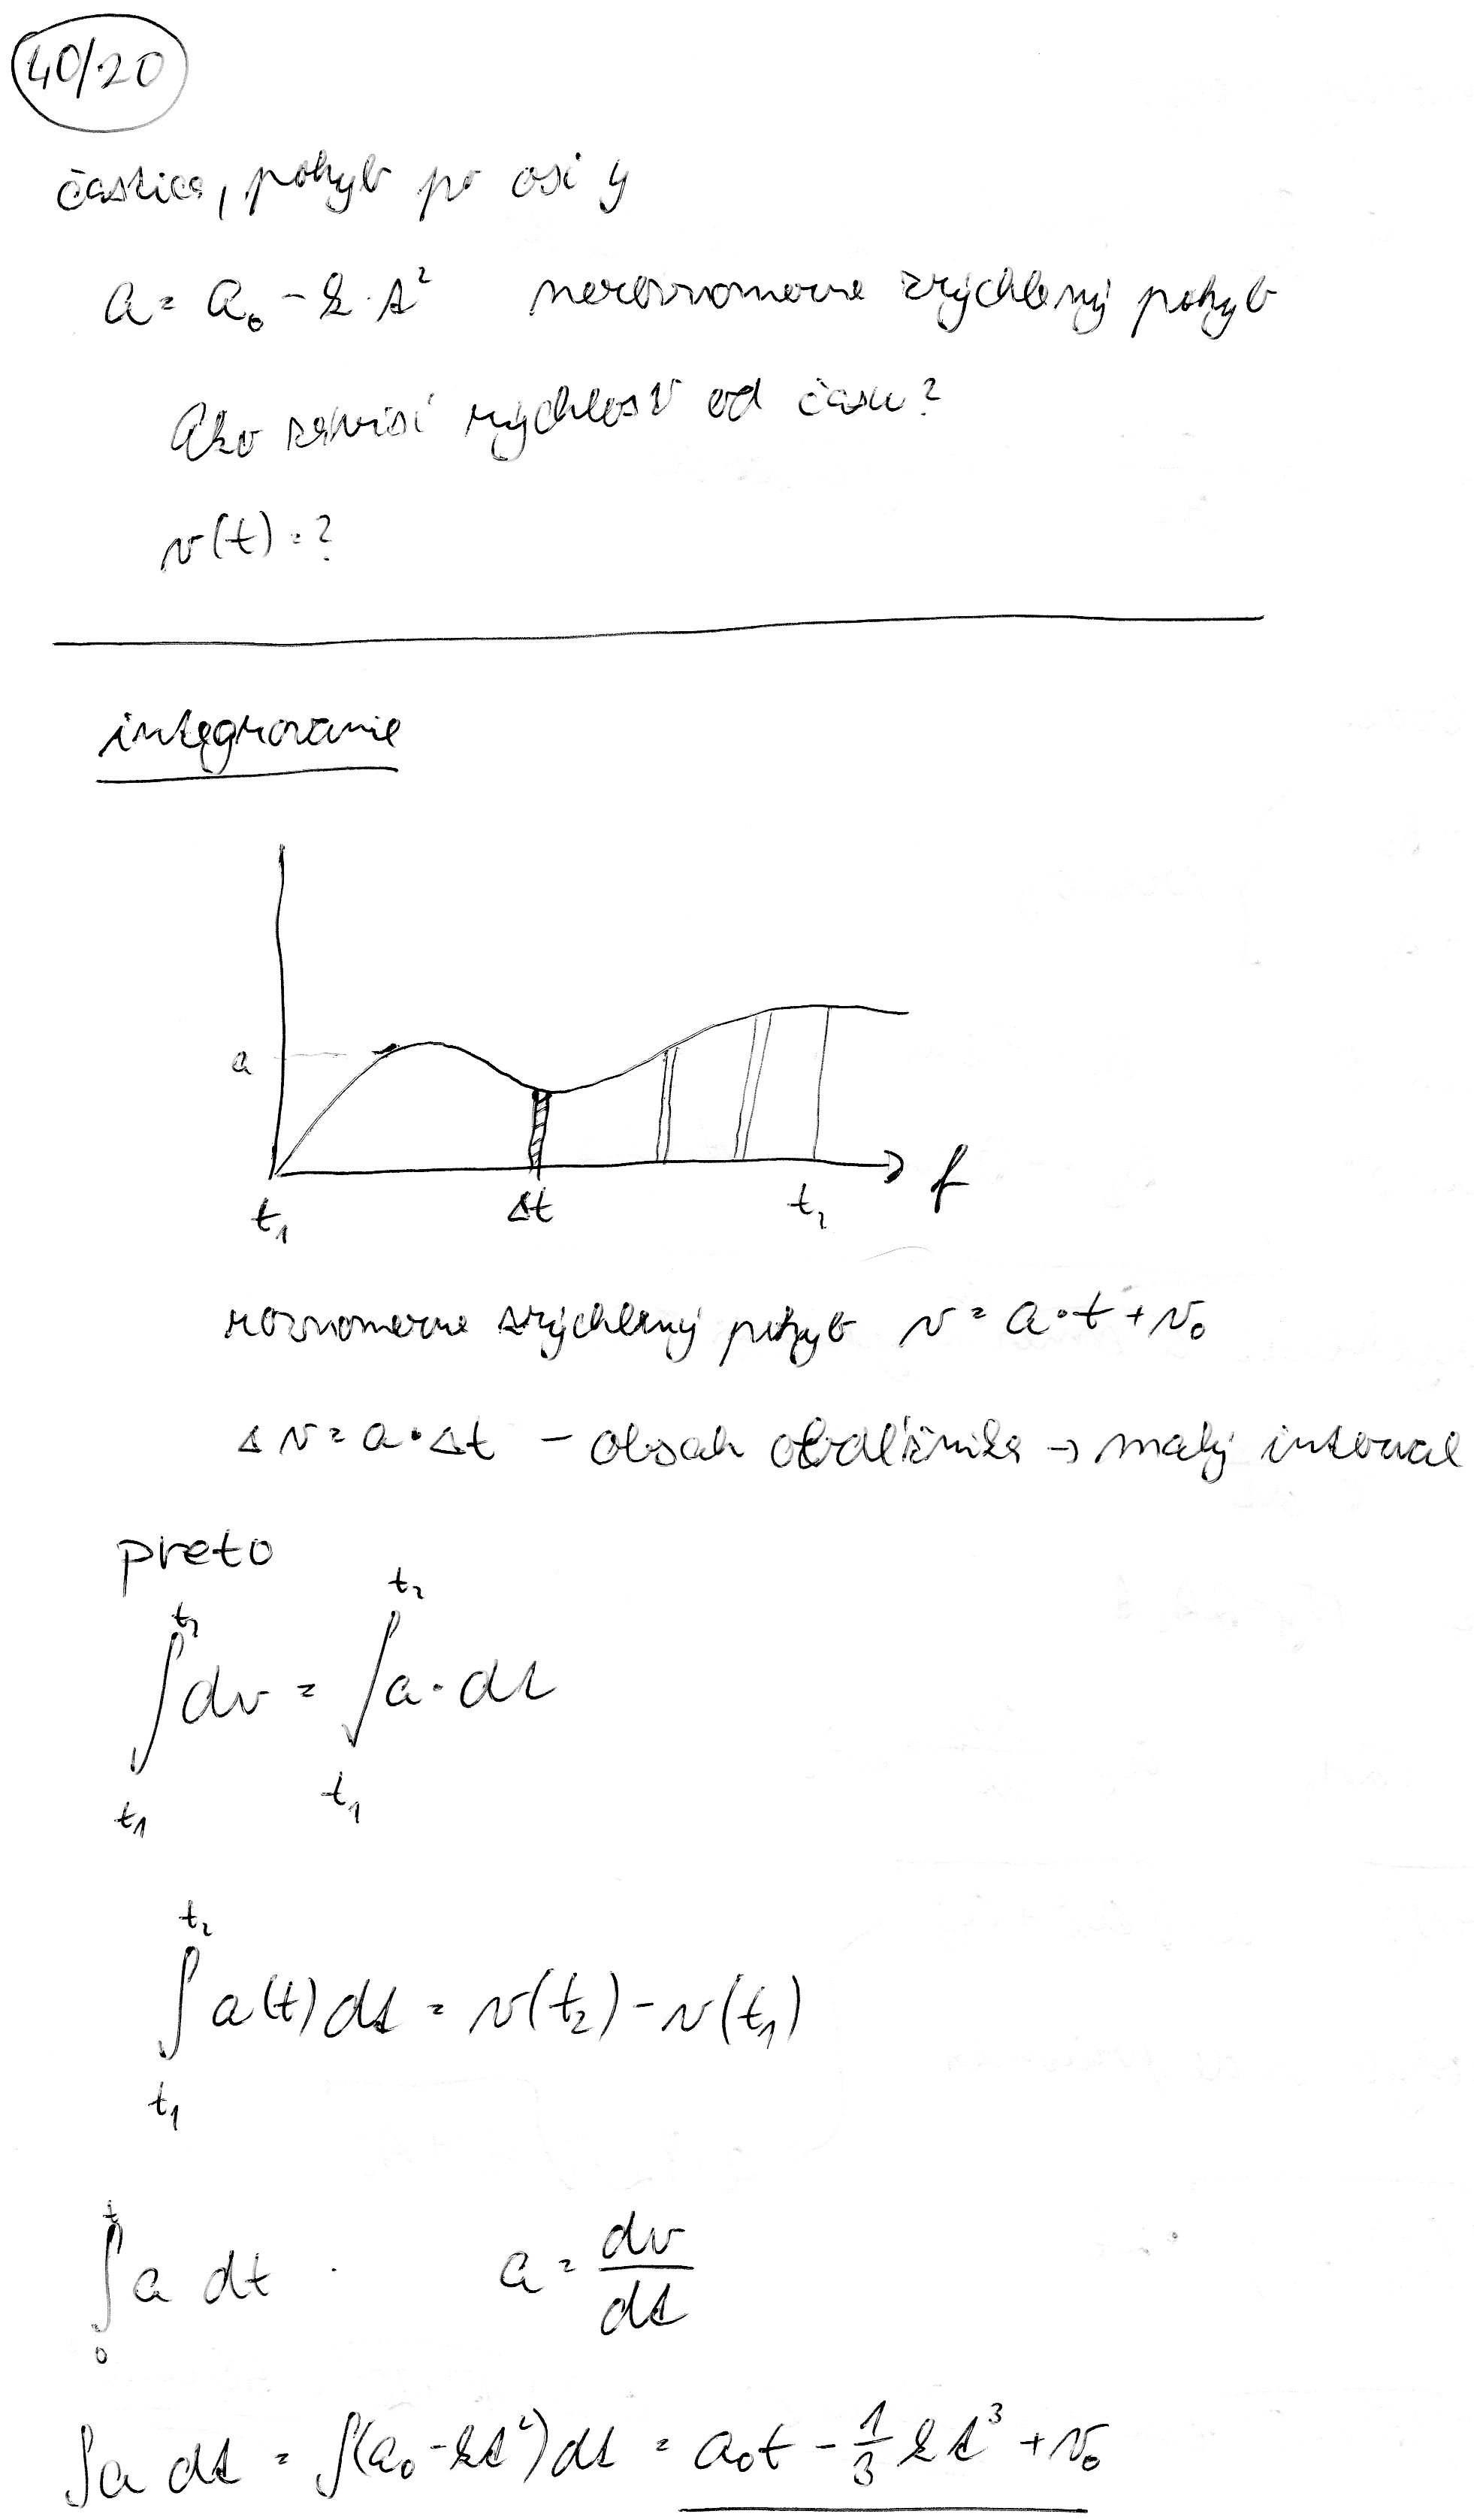 40/20
častica, pohyb po osi y
a = a₀ - k·t² nerovnomerne zrýchlený pohyb
Ako závisí rýchlosť od času?
v(t) = ?
integrovanie
a
t₁ Δt t₂ t
rovnomerne zrýchlený pohyb v = a·t + v₀
Δv = a·Δt - obsah obdĺžnika → malý interval
preto
∫_{t₁}^{t₂} dv = ∫_{t₁}^{t₂} a·dt
∫_{t₁}^{t₂} a(t) dt = v(t₂) - v(t₁)
∫_{0}^{t} a dt a = dv/dt
∫a dt = ∫(a₀ - kt²)dt = a₀t - 1/3 kt³ + v₀